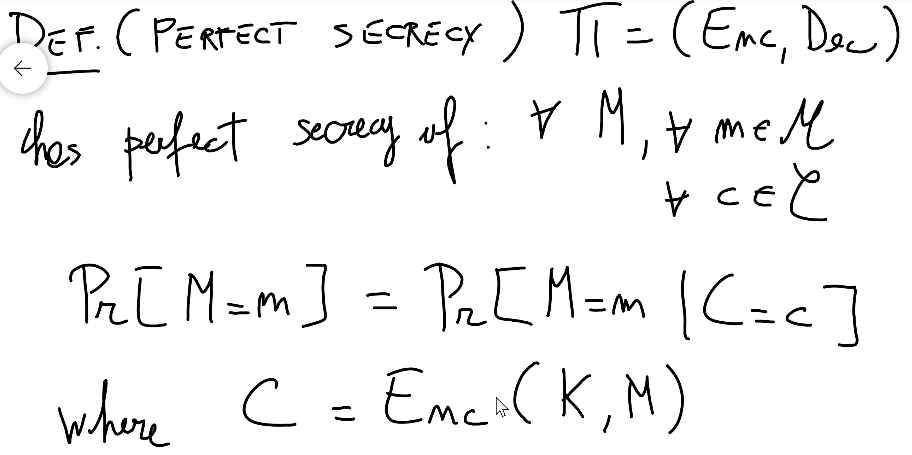 DEF. (PERFECT SECRECY) Π = (Enc, Dec)
has perfect secrecy if: ∀ M, ∀ m ∈ ℳ
∀ c ∈ 𝒞
Pr[M=m] = Pr[M=m | C=c]
where C = Enc(K, M)